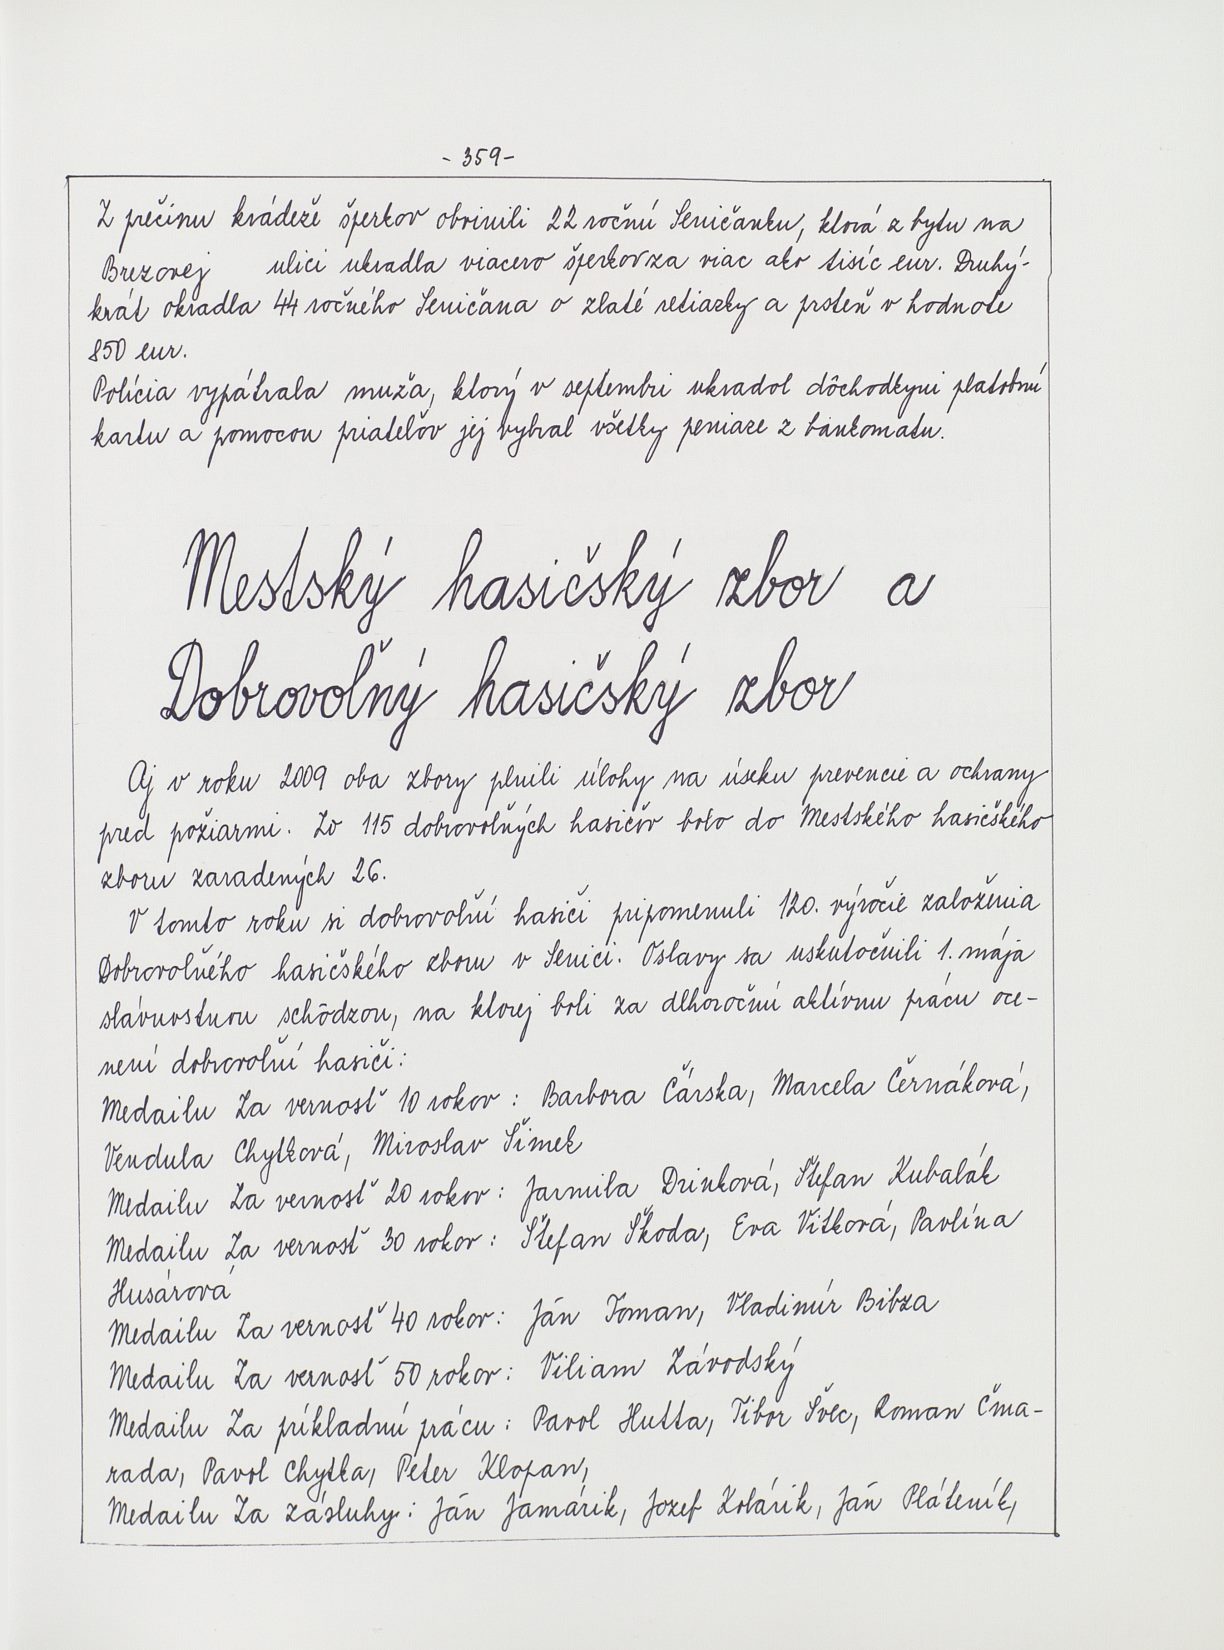 - 359 -
Z prečinu krádeže šperkov obvinili 22 ročnú Seničanku, ktorá z bytu na
Brezovej ulici ukradla viacero šperkov za viac ako tisíc eur. Druhý-
krát okradla 44 ročného Seničana o zlaté retiazky a prsteň v hodnote
850 eur.
Polícia vypátrala muža, ktorý v septembri ukradol dôchodkyni platobnú
kartu a pomocou priateľov jej vybral všetky peniaze z bankomatu.
Mestský hasičský zbor a
Dobrovoľný hasičský zbor
Aj v roku 2009 oba zbory plnili úlohy na úseku prevencie a ochrany
pred požiarmi. Zo 115 dobrovoľných hasičov bolo do Mestského hasičského
zboru zaradených 26.
V tomto roku si dobrovoľní hasiči pripomenuli 120. výročie založenia
Dobrovoľného hasičského zboru v Senici. Oslavy sa uskutočnili 1. mája
slávnostnou schôdzou, na ktorej boli za dlhoročnú aktívnu prácu oce-
není dobrovoľní hasiči:
Medailu Za vernosť 10 rokov: Barbora Čárska, Marcela Černáková,
Vendula Chytková, Miroslav Šimek
Medailu Za vernosť 20 rokov: Jarmila Drinková, Štefan Kubalák
Medailu Za vernosť 30 rokov: Štefan Škoda, Eva Vítková, Pavlína
Husárová
Medailu Za vernosť 40 rokov: Ján Toman, Vladimír Bibza
Medailu Za vernosť 50 rokov: Viliam Závodský
Medailu Za príkladnú prácu: Pavol Hutta, Tibor Švec, Roman Čma-
rada, Pavol Chytka, Peter Klopan,
Medailu Za zásluhy: Ján Jamárik, Jozef Kolárik, Ján Pláteník,